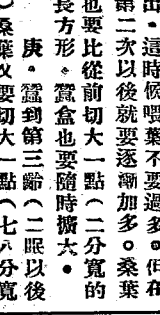 出。這時候喂葉不要過多。但在
第二次以後就要逐漸加多。桑葉
也要比從前切大一點(二分寬的
長方形。蠶盒也要隨時擴大。
庚。蠶到第三齡(二眠以後
)桑葉又要切大一點(七八分寬